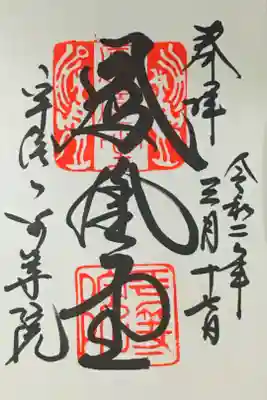 奉拝
令和二年
三月十七日
鳳凰堂
宇治平等院